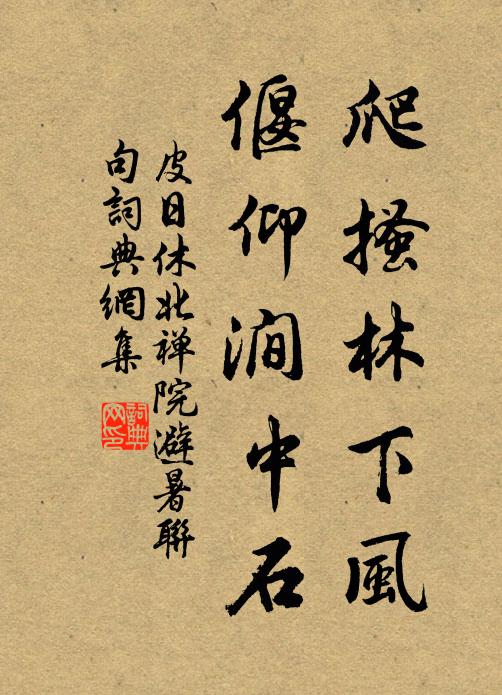 爬搔林下風
偃仰澗中石
皮日休北禅院避暑聯
句詞典網集
詞典
网印